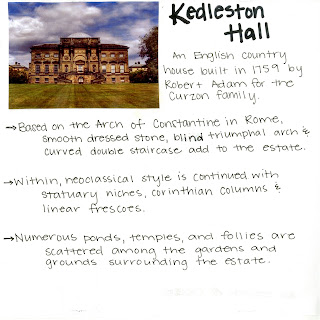 Kedleston
Hall
An English country
house built in 1759 by
Robert Adam for the
Curzon family.
→Based on the Arch of Constantine in Rome,
smooth dressed stone, blind triumphal arch &
curved double staircase add to the estate.
→Within, neoclassical style is continued with
statuary niches, corinthian columns &
linear frescoes.
→Numerous ponds, temples, and follies are
scattered among the gardens and
grounds surrounding the estate.